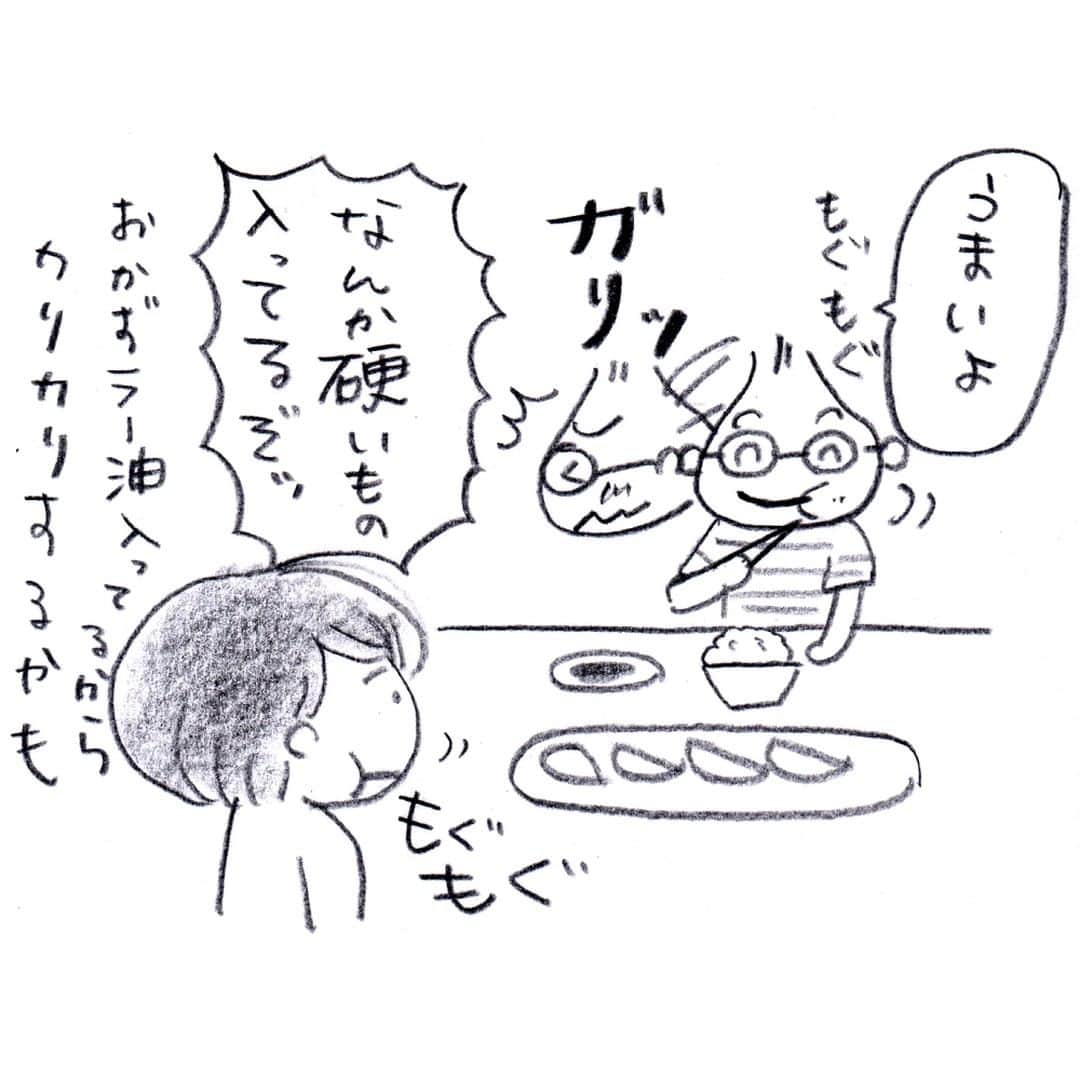 うまいよ
もぐもぐ
ガリッ
なんか硬いもの
入ってるぞッ
もぐ
もぐ
おかずラー油入ってるから
カリカリするかも